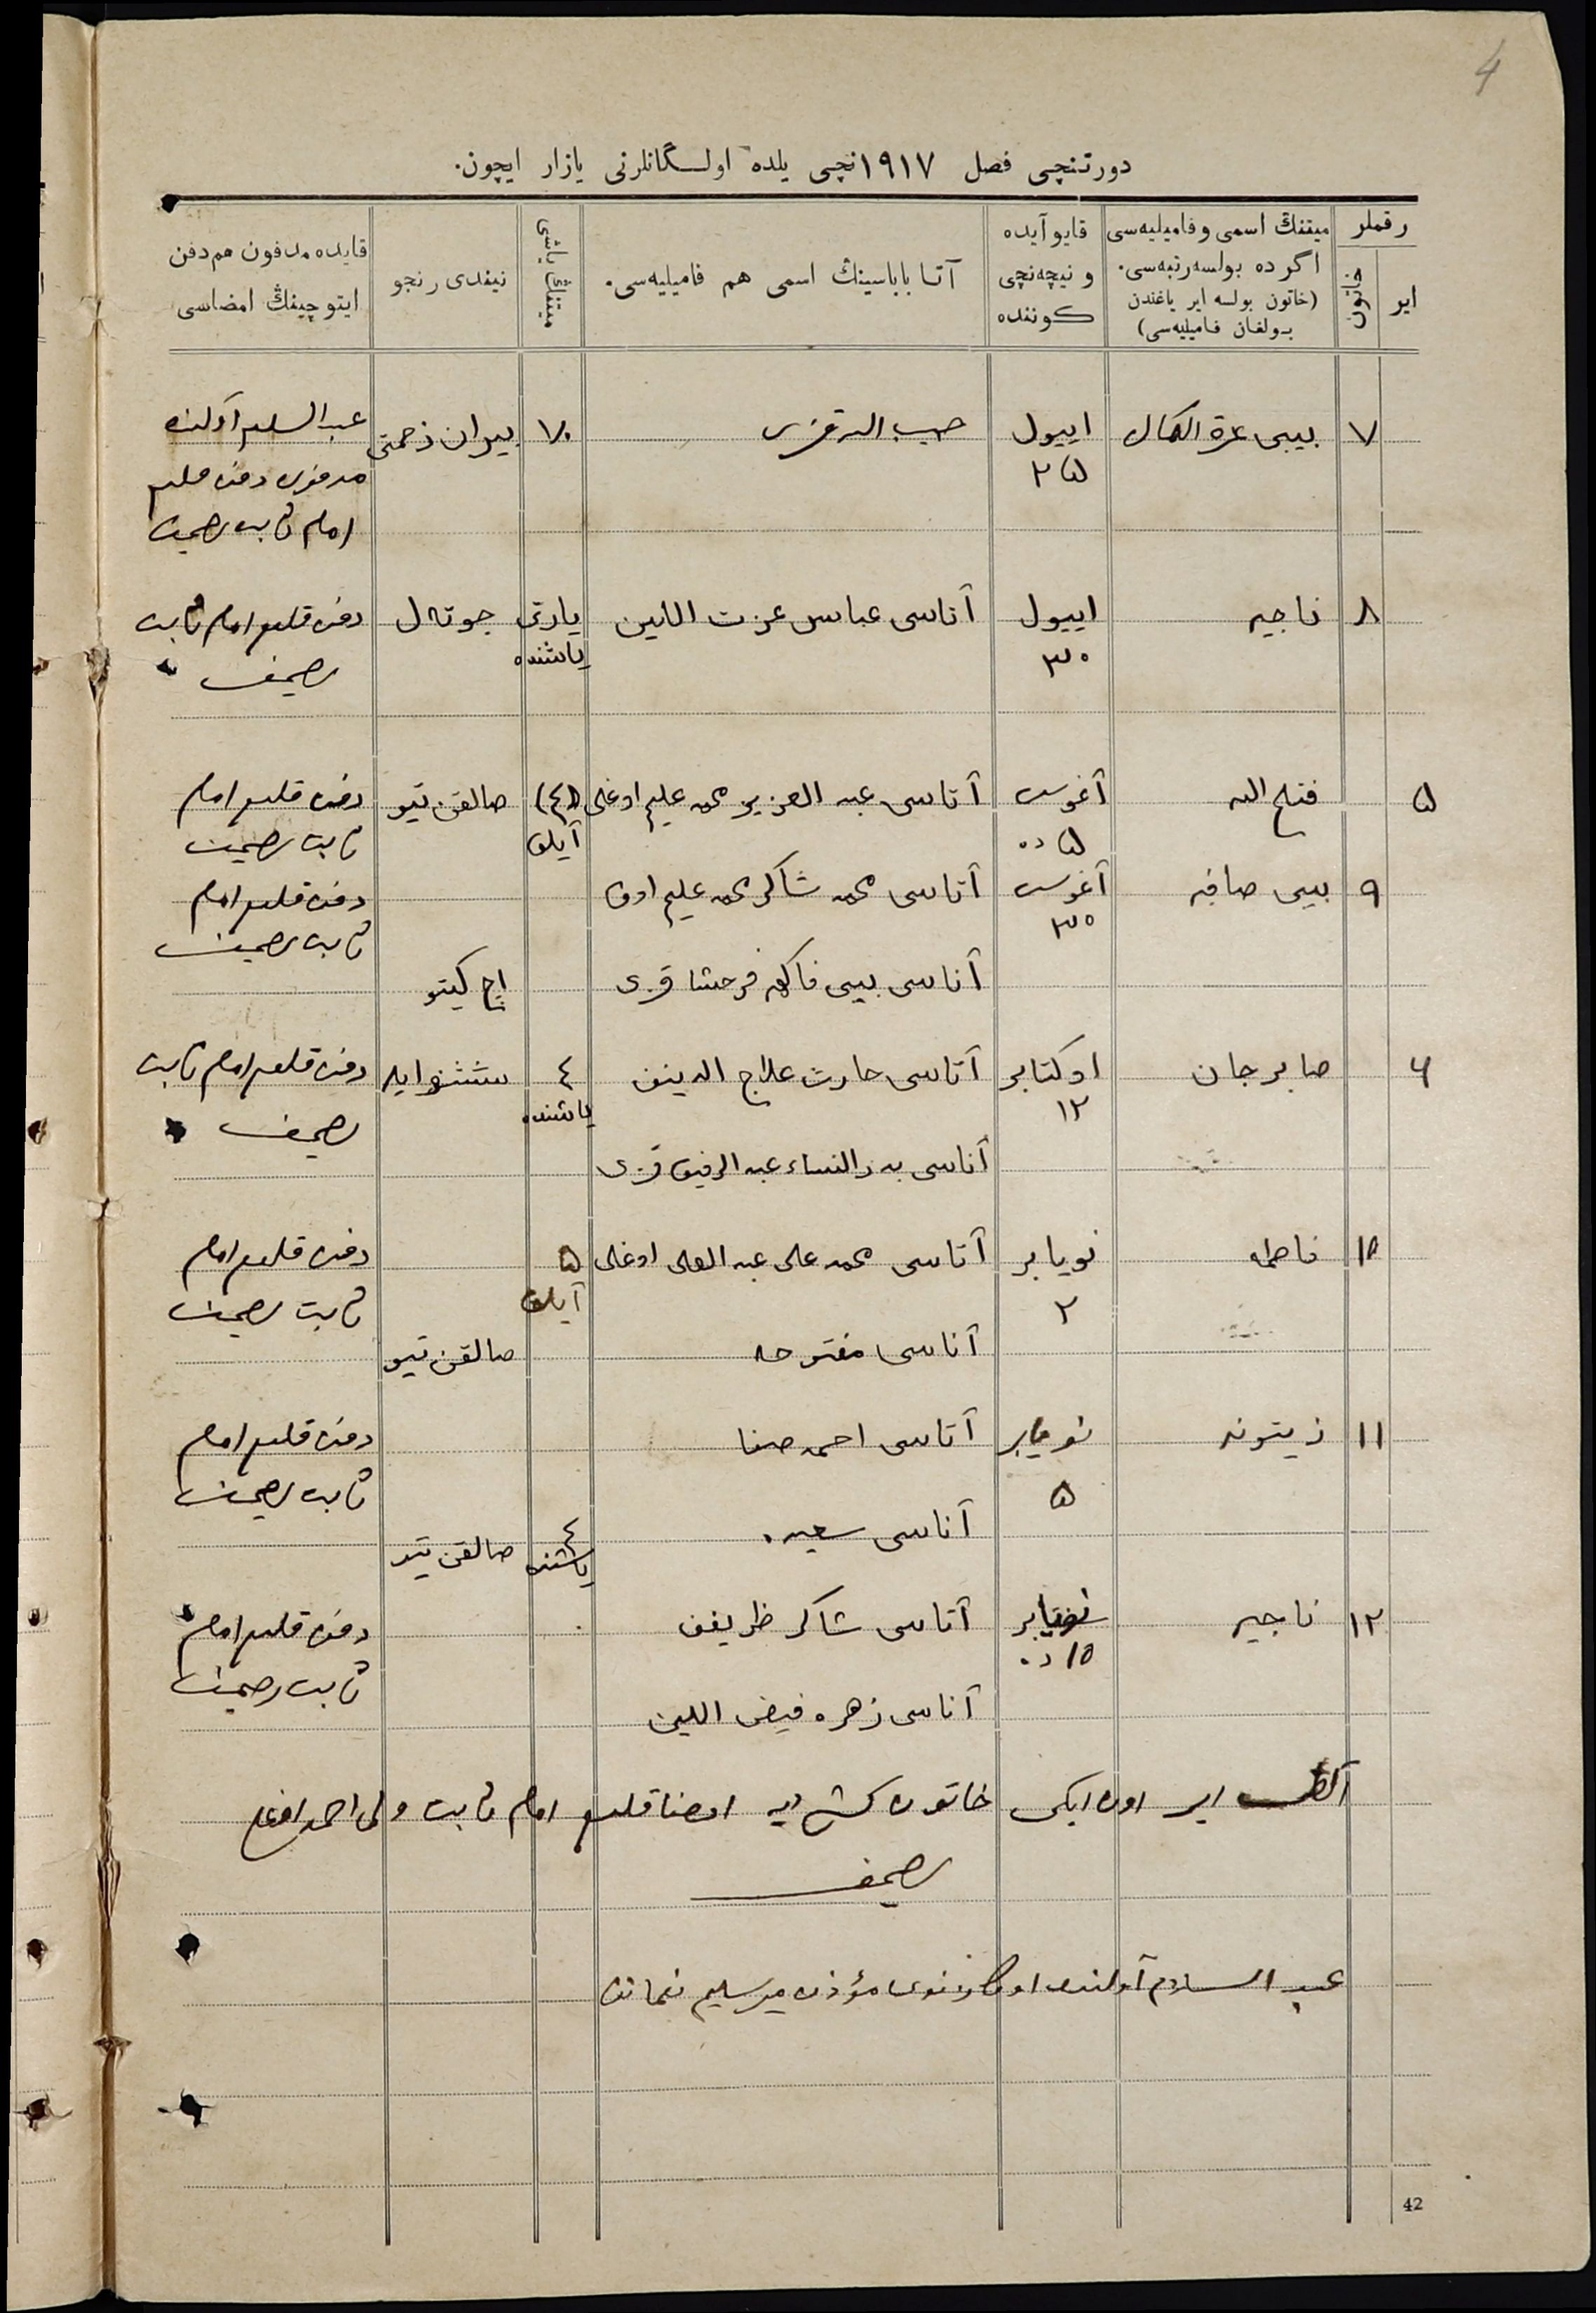 4
دورتنچی فصل ١٩١٧نچی یلده اولــگانلرنی یازار ایچون.
رقملر
ایر
خاتون
میتنڭ اسمی و فامیلیه‌سی
اگر ده بولسه رتبه‌سی.
(خاتون بولسه ایر یاغندن
بـولغان فامیلیه‌سی)
قایو آیده
و نیچه‌نچی
کوننده
آتـا باباسینڭ اسمی هم فامیلیه‌سی.
میتنڭ یاشی
نیندی رنجو
قایده مدفون هم دفن
ایتوچینڭ امضاسی
٧
بیبی عزة الکمال
اییول
٢۵
حبیب الله قزی
٧٠
بیران زحمتی
عبد السلام آولنده
مدفون دفن قلدم
امام ثابت
٨
ناجیه
اییول
٣٠
آتاسی عباس عزت اللین
یارتی
یاشنده
جوتال
دفن قلدم امام ثابت
۵
فتح الله
آغوست
۵ ده
آتاسی عبد العزیز محمد علیم اوغلی
(٤)
آیلق
صالقن تیو
دفن قلدم امام
ثابت
٩
بیبی صافیه
آغوست
٣٠
آتاسی محمد شاکر محمد علیم اوف
آناسی بیبی فاکهه فرحشا قزی
اچ کیتو
دفن قلدم امام
ثابت
٦
صابر جان
اوکتابر
١٢
آتاسی حارث علاج الدینف
آناسی بدر النساء عبد الرفیق قزی
٤
یاشنده
دفن قلدم امام ثابت
١٠
فاطمه
نویابر
٢
آتاسی محمد علی عبد العلی اوغلی
آناسی مفتوحه
۵
آیلق
صالقن تیو
دفن قلدم امام
ثابت
١١
زیتونه
نویابر
۵
آتاسی احمد صفا
آناسی سعیده
٤
یاشنده
صالقن تیو
دفن قلدم امام
ثابت
١٢
ناجیه
نویابر
١٥ ده
آتاسی شاکر ظریفف
آناسی زهره فیض اللین
دفن قلدم امام
ثابت
آلطی ایر اون ایکی خاتون کشی دیه امضا قلدم امام ثابت ولی احمد اوغلی
عبد السلام آولنده مؤذن میرسلیم نعمانف
42